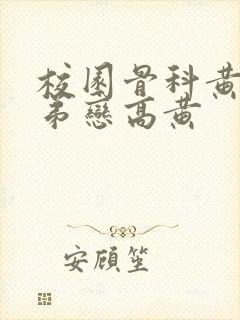 校園骨科黃
弟戀高黃
安頎笙